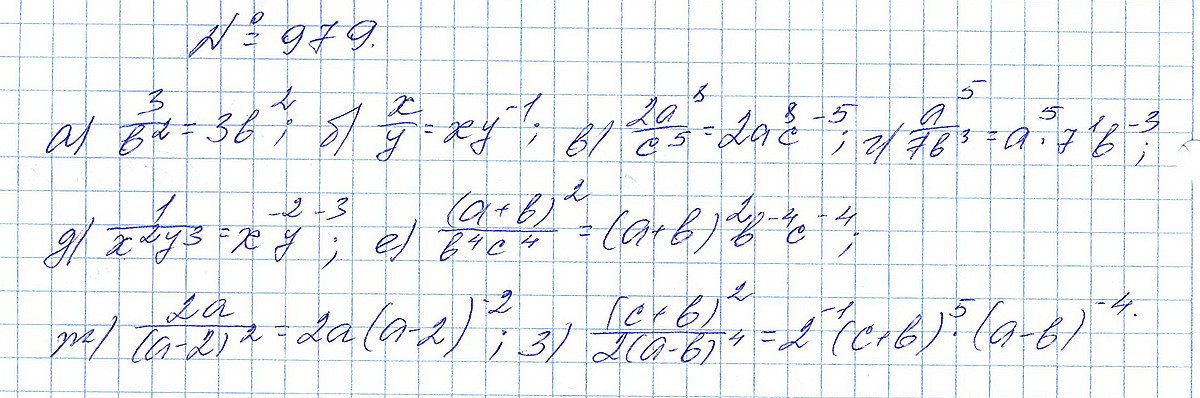 № 979.
а) 3/b² = 3b²; б) x/y = xy⁻¹; в) 2a⁸/c⁵ = 2a⁸c⁻⁵; г) a⁵/7b³ = a⁵·7¹b⁻³;
д) 1/x²y³ = x⁻²y⁻³; е) (a+b)²/b⁴c⁴ = (a+b)²b⁻⁴c⁻⁴;
ж) 2a/(a-2)² = 2a(a-2)⁻²; з) (c+b)²/2(a-b)⁴ = 2⁻¹(c+b)⁵·(a-b)⁻⁴.